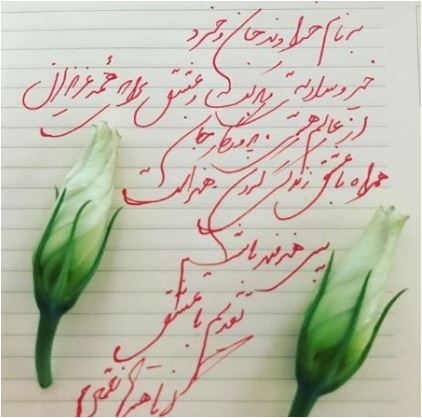 به نام خداوند جان و خرد
خیر و سلامتی و برکت و عشق برای همه عزیزان
از عالم هستی، پروردگار جان
همراه با عشق زندگی کردن هنر است
پس هنرمند باشیم
تقدیم با عشق